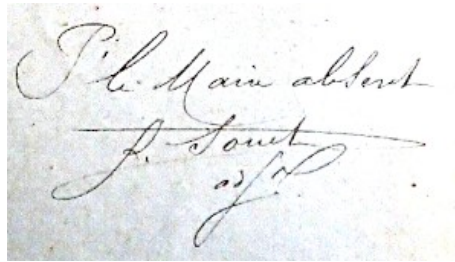 P. le Maire absent
J. Souet
adj.